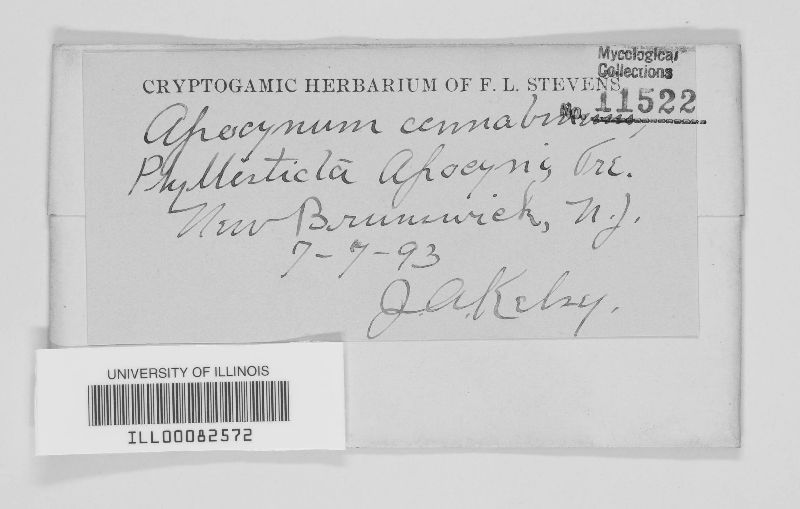 Mycological
Collections
CRYPTOGAMIC HERBARIUM OF F. L. STEVENS
No. 11522
Apocynum cannabinum,
Phyllosticta Apocyni, Tre.
New Brunswick, N.J.
7-7-93
J. A. Kelsey.
UNIVERSITY OF ILLINOIS
ILL00082572